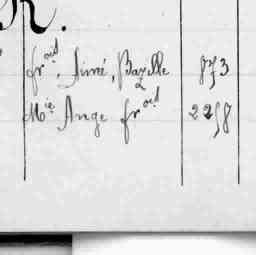 R.
frois, Aimé, Bazille 873
Mie Ange frois 2258